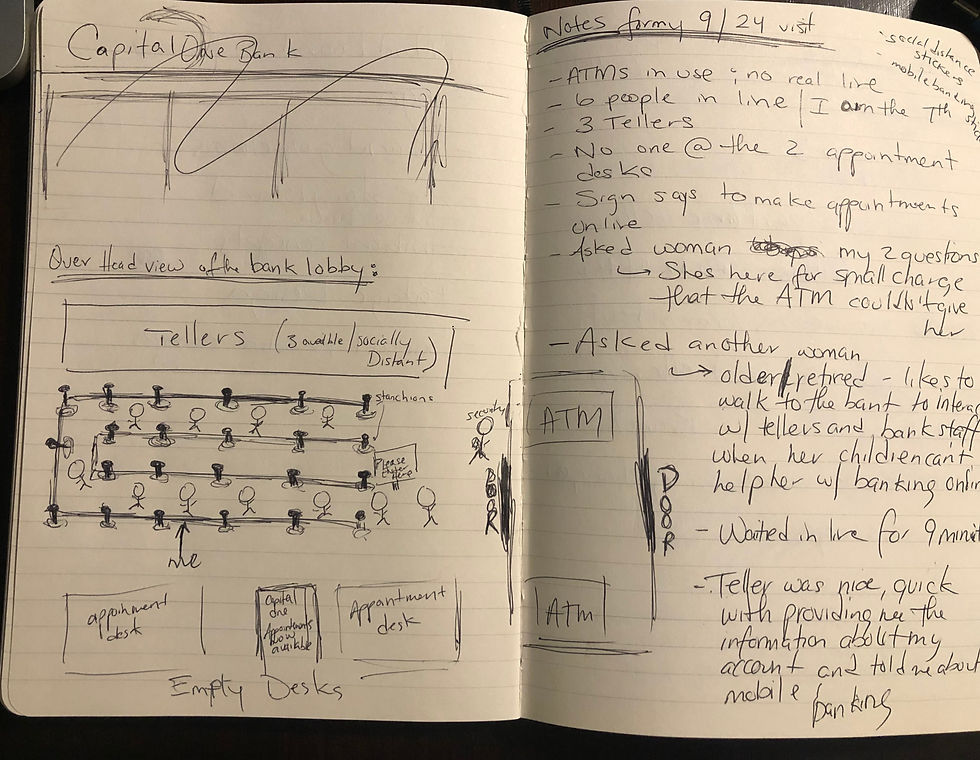 Capital One Bank
Over Head view of the bank lobby:
Tellers (3 availble/socially
Distant)
stanchions
Please
Enter
Here
me
appointment
desk
Capital
One
Appointments
Now
available
Appointment
desk
Empty Desks
security
DOOR
ATM
ATM
DOOR
Notes for my 9/24 visit
· social distance
stickers
· mobile banking
- ATMs in use ; no real line
- 6 people in line / I am the 7th
- 3 Tellers
- No one @ the 2 appointment
desks
- Sign says to make appointments
online
- Asked woman my 2 questions
↳ Shes here for small change
that the ATM couldn't give
her
- Asked another woman
↳ older/retired - likes to
walk to the bank to intera
w/ tellers and bank staff
when her children cant
help her w/ banking onlin
- Waited in line for 9 minut
- Teller was nice, quick
with providing me the
information about my
account and told me about
mobile banking